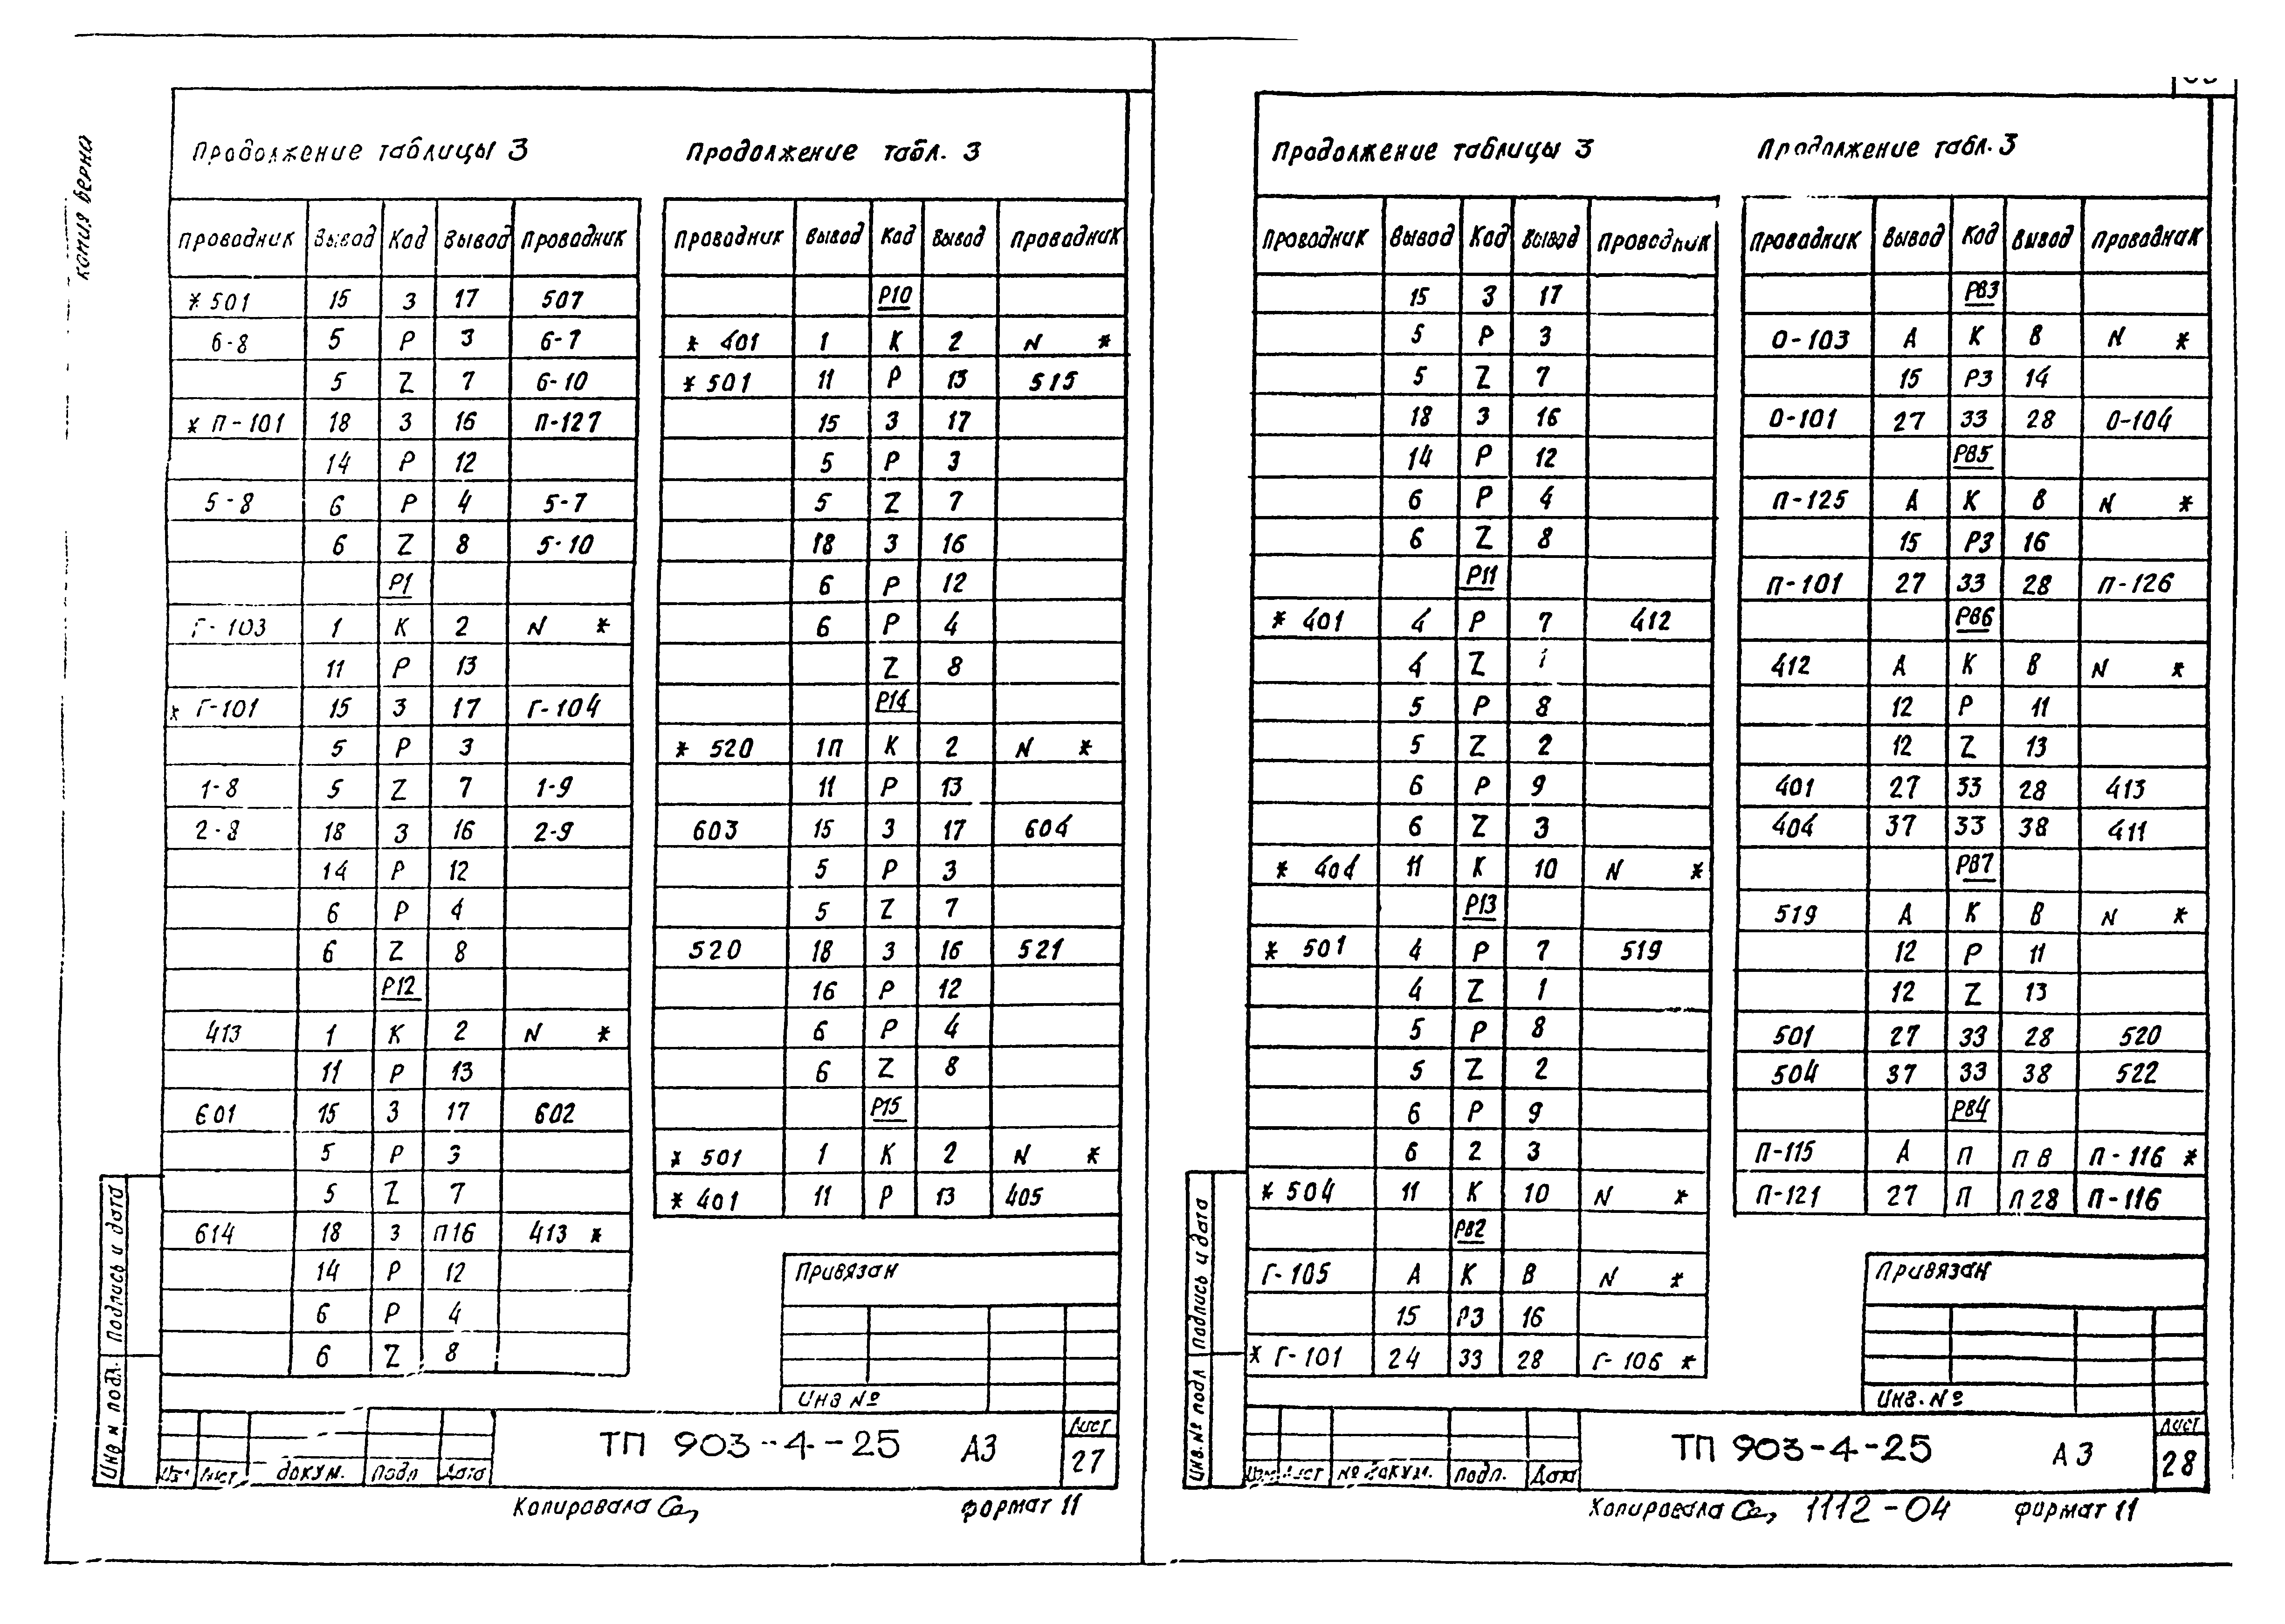 копия верна
Продолжение таблицы 3
Проводник Вывод Код Вывод Проводник
* 501 15 З 17 507
6-8 5 Р 3 6-7
5 Z 7 6-10
* П-101 18 З 16 П-127
14 Р 12
5-8 6 Р 4 5-7
6 Z 8 5-10
Р1
Г-103 1 К 2 N *
11 Р 13
* Г-101 15 З 17 Г-104
5 Р 3
1-8 5 Z 7 1-9
2-8 18 З 16 2-9
14 Р 12
6 Р 4
6 Z 8
Р12
413 1 К 2 N *
11 Р 13
601 15 З 17 602
5 Р 3
5 Z 7
614 18 З П16 413 *
14 Р 12
6 Р 4
6 Z 8
Продолжение табл. 3
Проводник Вывод Код Вывод Проводник
Р10
* 401 1 К 2 N *
* 501 11 Р 13 515
15 З 17
5 Р 3
5 Z 7
18 З 16
6 Р 12
6 Р 4
Z 8
Р14
* 520 1П К 2 N *
11 Р 13
603 15 З 17 604
5 Р 3
5 Z 7
520 18 З 16 521
16 Р 12
6 Р 4
6 Z 8
Р15
* 501 1 К 2 N *
* 401 11 Р 13 405
Привязан
Инв №
Подпись и дата
Инв N подл.
Лист докум. Подп Дата
ТП 903-4-25 А3
Лист
27
Копировала
формат 11
Продолжение таблицы 3
Проводник Вывод Код Вывод Проводник
15 З 17
5 Р 3
5 Z 7
18 З 16
14 Р 12
6 Р 4
6 Z 8
Р11
* 401 4 Р 7 412
4 Z 1
5 Р 8
5 Z 2
6 Р 9
6 Z 3
* 404 11 К 10 N *
Р13
* 501 4 Р 7 519
4 Z 1
5 Р 8
5 Z 2
6 Р 9
6 2 3
* 504 11 К 10 N *
РВ2
Г-105 А К В N *
15 РЗ 16
* Г-101 24 ЗЗ 28 Г-106 *
Продолжение табл. 3
Проводник Вывод Код Вывод Проводник
РВ3
О-103 А К В N *
15 РЗ 14
О-101 27 ЗЗ 28 О-104
РВ5
П-125 А К В N *
15 РЗ 16
П-101 27 ЗЗ 28 П-126
РВ6
412 А К В N *
12 Р 11
12 Z 13
401 27 ЗЗ 28 413
404 37 ЗЗ 38 411
РВ7
519 А К В N *
12 Р 11
12 Z 13
501 27 ЗЗ 28 520
504 37 ЗЗ 38 522
РВ4
П-115 А П П В П-116 *
П-121 27 П П28 П-116
Привязан
Инв. №
Подпись и дата
Инв. № подл
Изм Лист № докум. Подп. Дата
ТП 903-4-25 А3
Лист
28
Копировала
1112-04
формат 11